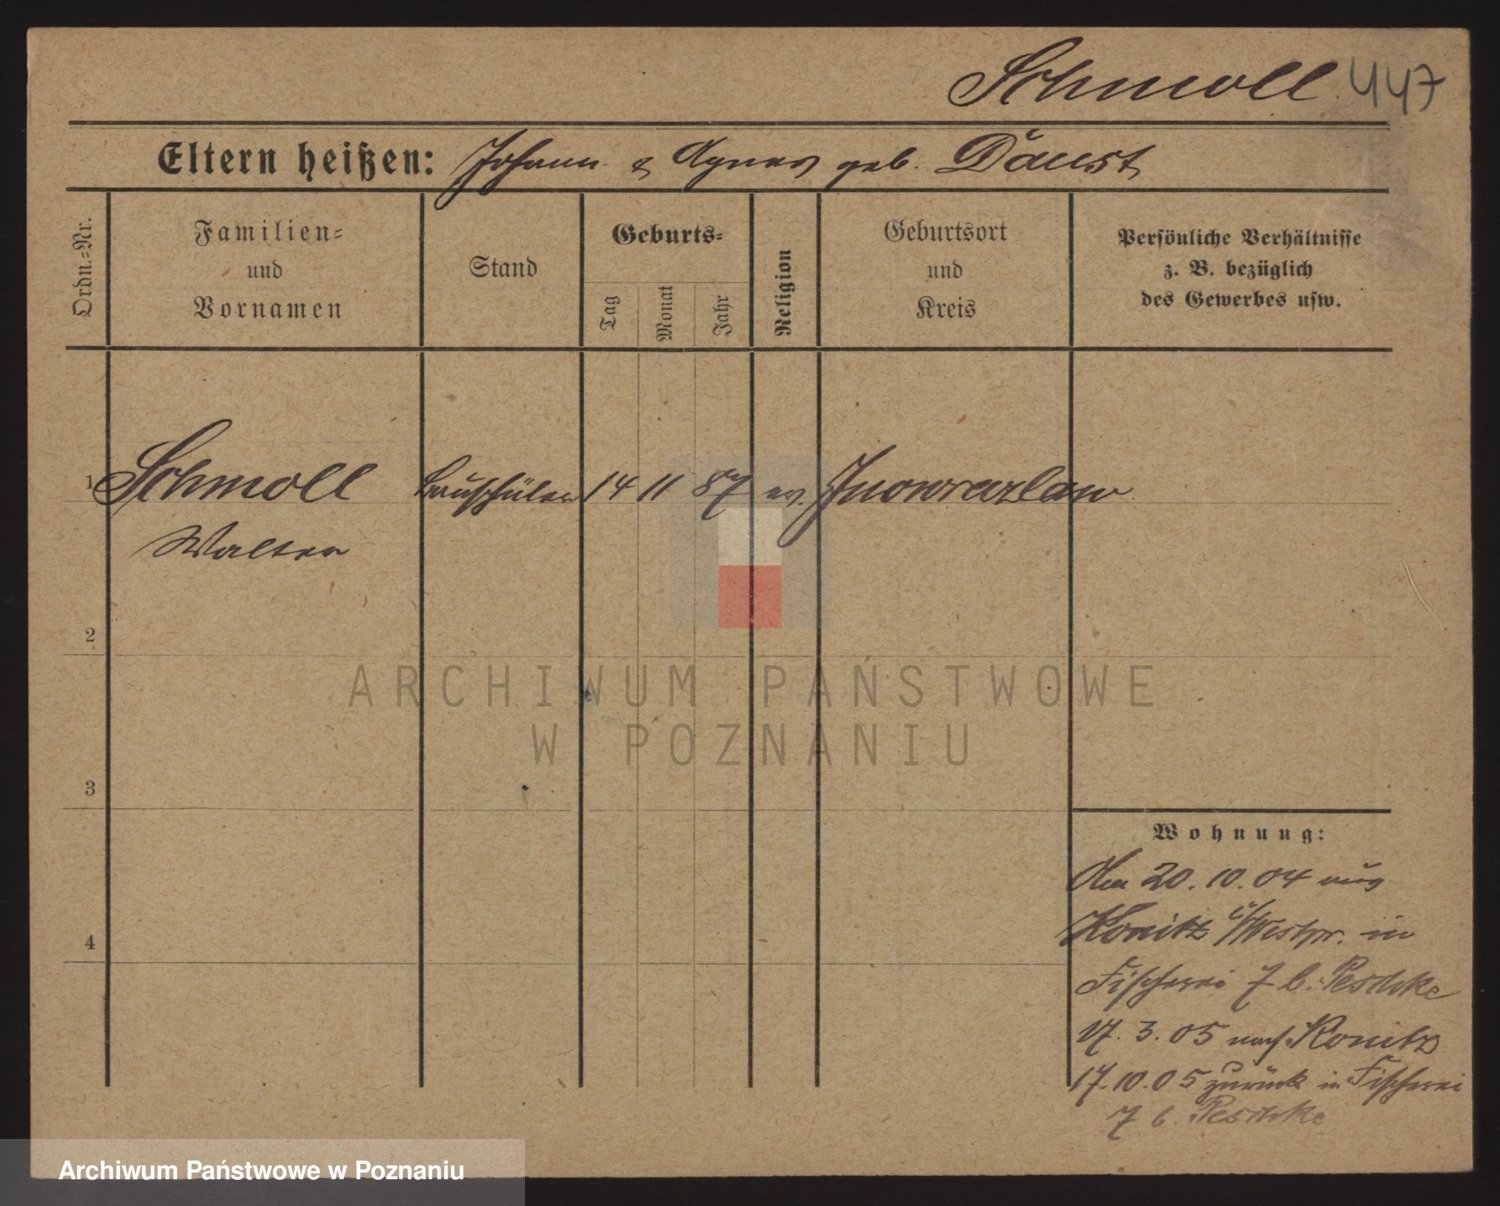 Schmoll 447
Eltern heißen: Johann & Agnes geb. Daust
Ordn.-Nr.
Familien-
und
Vornamen
Stand
Geburts-
Tag
Monat
Jahr
Religion
Geburtsort
und
Kreis
Persönliche Verhältnisse
z. B. bezüglich
des Gewerbes usw.
1 Schmoll Bauschüler 14 11 87 ev. Inowrazlaw
Walter
2
3
4
ARCHIWUM PAŃSTWOWE
W POZNANIU
Wohnung:
Am 20. 10. 04 aus
Konitz i/Westpr. in
Fischerei 7 b. Peschke
17. 3. 05 nach Konitz
17. 10. 05 zurück in Fischerei
7 b. Peschke
Archiwum Państwowe w Poznaniu